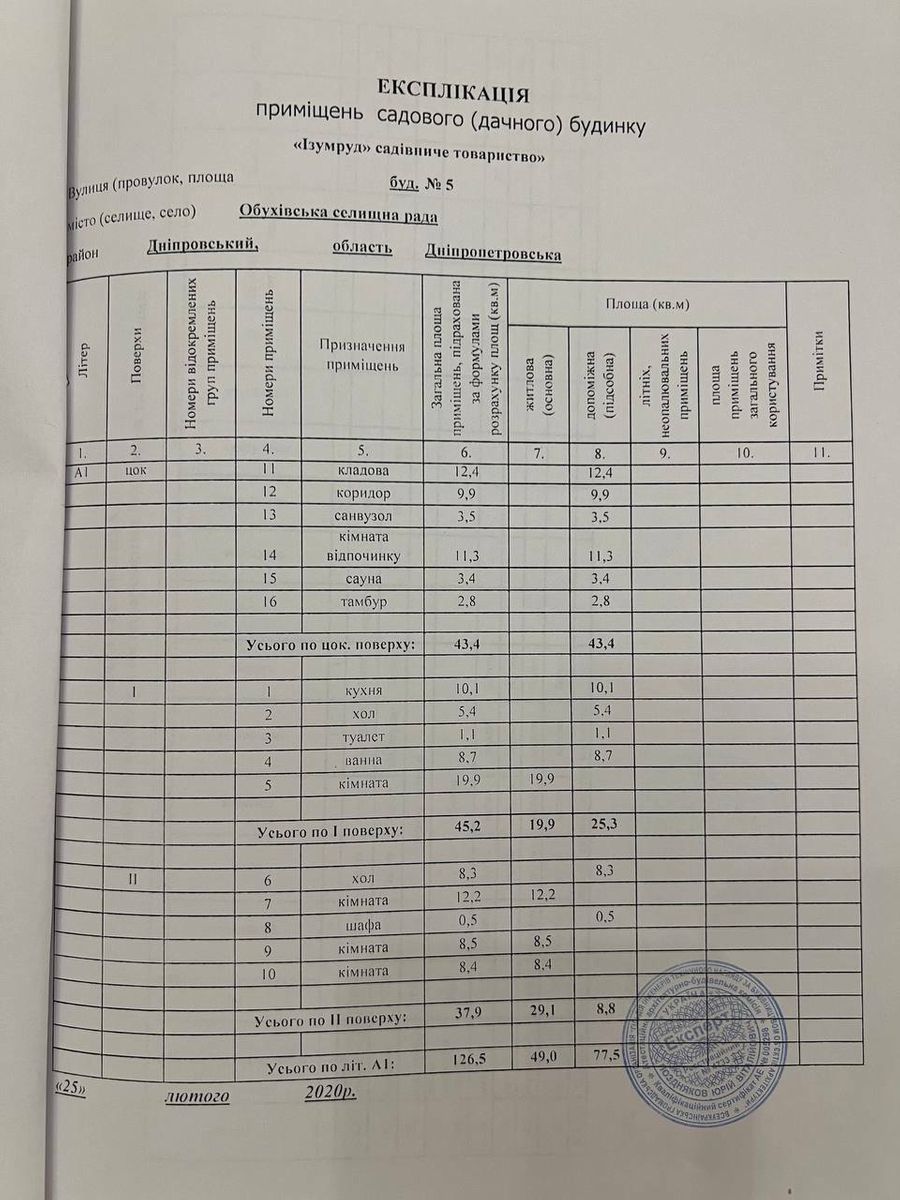 ЕКСПЛІКАЦІЯ
приміщень садового (дачного) будинку
«Ізумруд» садівниче товариство»
Вулиця (провулок, площа буд. № 5
місто (селище, село) Обухівська селищна рада
район Дніпровський, область Дніпропетровська
Літер
Поверхи
Номери відокремлених груп приміщень
Номери приміщень
Призначення приміщень
Загальна площа приміщень, підрахована за формулами розрахунку площ (кв.м)
Площа (кв.м)
житлова (основна)
допоміжна (підсобна)
літніх, неопалювальних приміщень
площа приміщень загального користування
Примітки
1. 2. 3. 4. 5. 6. 7. 8. 9. 10. 11.
А1 цок 11 кладова 12,4 12,4
12 коридор 9,9 9,9
13 санвузол 3,5 3,5
кімната
14 відпочинку 11,3 11,3
15 сауна 3,4 3,4
16 тамбур 2,8 2,8
Усього по цок. поверху: 43,4 43,4
I 1 кухня 10,1 10,1
2 хол 5,4 5,4
3 туалет 1,1 1,1
4 ванна 8,7 8,7
5 кімната 19,9 19,9
Усього по І поверху: 45,2 19,9 25,3
II 6 хол 8,3 8,3
7 кімната 12,2 12,2
8 шафа 0,5 0,5
9 кімната 8,5 8,5
10 кімната 8,4 8,4
Усього по ІІ поверху: 37,9 29,1 8,8
Усього по літ. А1: 126,5 49,0 77,5
«25» лютого 2020р.
УКРАЇНА
Експерт
ПОЗДНЯКОВ ЮРІЙ ВІТАЛІЙОВИЧ
Кваліфікаційний сертифікат АЕ № 005298